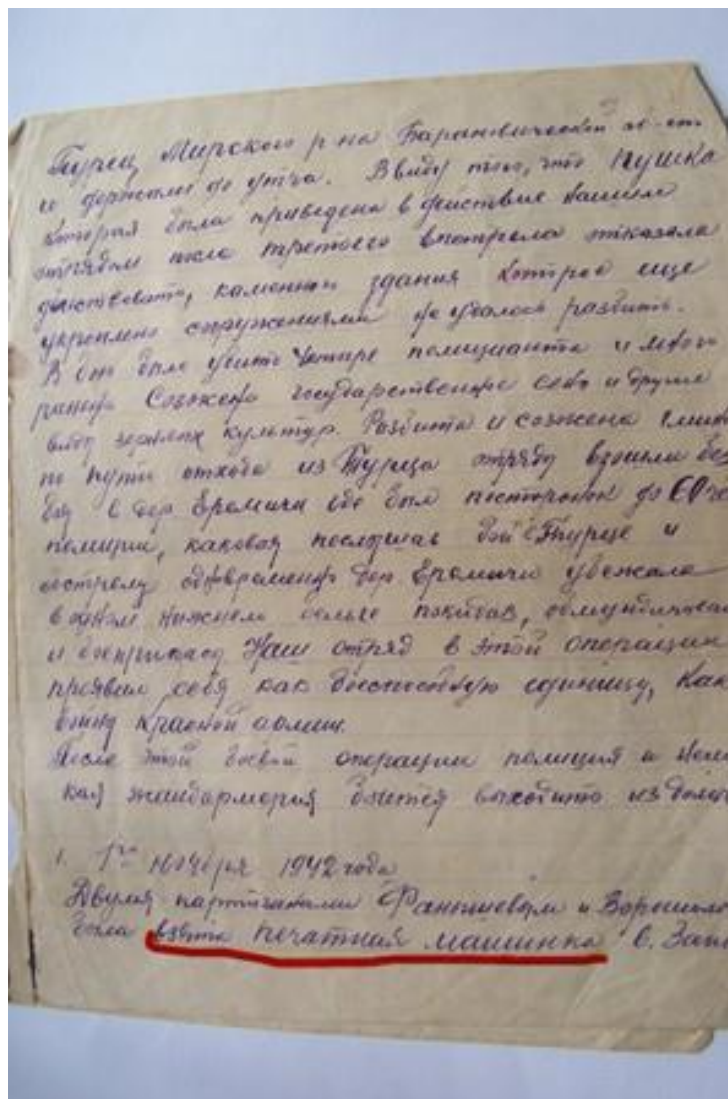 Турец Мирского р-на Барановической об-сти
и держали до утра. Ввиду того, что пушка
которая была приведена в действие нашим
отрядом после третьего выстрела отказала
действовать, каменное здания которое еще
укреплено сооружениями не удалось разбить.
В бою было убито четыре полицианта и много
ранено Созжено государственное сено и другие
вид зерновых культур. Разбита и созжена
по пути отхода из Турца отряду взошли без
боя в дер Еремичи где был постронок до 60 че
полиции, каковая послышав бой в Турце и
выстрелу одновременно дер Еремичи убежала
в одном нижнем белье покидав, обмундирован
и боеприпасы Наш отряд в этой операции
проявил себя как боеспособную единицу, как
воину красной армии.
После этой боевой операции полиция и неме
кая жандармерия боится выходить из
1. 1го ноября 1942 года
Двумя партизанами и
была взята печатная машинка в. Запа